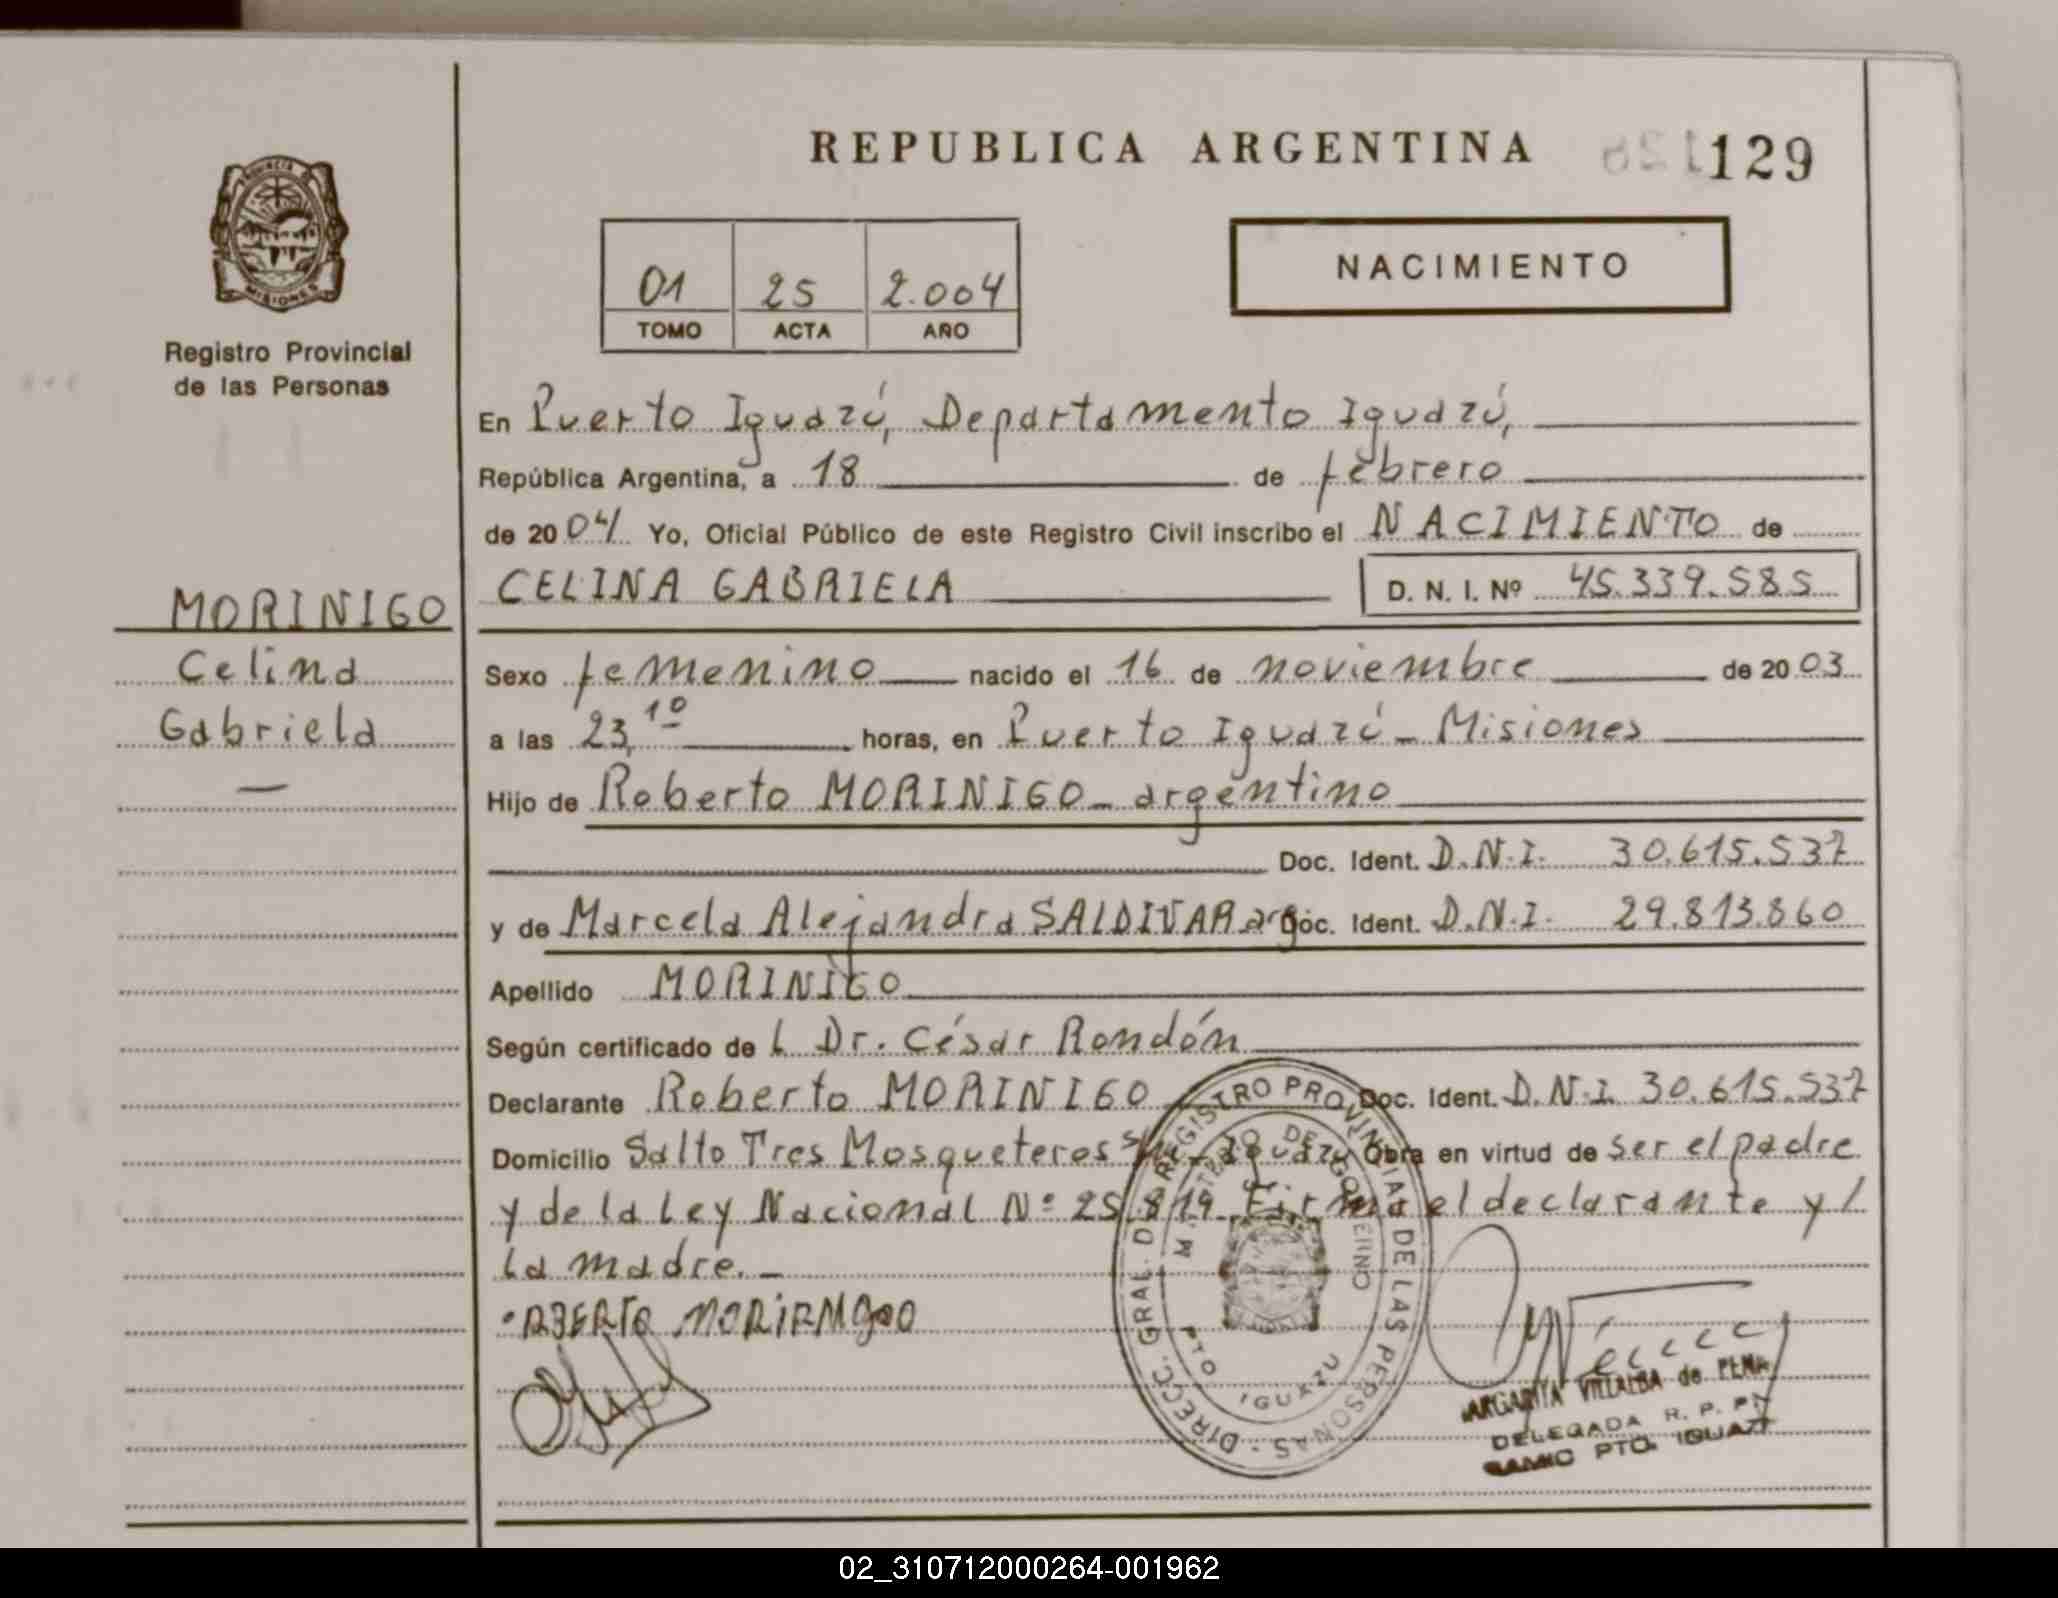 REPUBLICA ARGENTINA
129
PROVINCIA
MISIONES
Registro Provincial
de las Personas
01 25 2.004
TOMO ACTA AÑO
NACIMIENTO
En Puerto Iguazú, Departamento Iguazú,
República Argentina, a 18 de febrero
de 2004 Yo, Oficial Público de este Registro Civil inscribo el NACIMIENTO de
CELINA GABRIELA D. N. I. Nº 45.339.585
MORINIGO
Celina
Gabriela
Sexo femenino nacido el 16 de noviembre de 2003
a las 23,10 horas, en Puerto Iguazú - Misiones
Hijo de Roberto MORINIGO - argentino
Doc. Ident. D.N.I. 30.615.537
y de Marcela Alejandra SALDIVAR arg Doc. Ident. D.N.I. 29.813.860
Apellido MORINIGO
Según certificado de L Dr. César Rondón
Declarante Roberto MORINIGO Doc. Ident. D.N.I. 30.615.537
Domicilio Salto Tres Mosqueteros s/n - Iguazú Obra en virtud de ser el padre
y de la Ley Nacional Nº 25.819. Firma el declarante y /
la madre. -
DIRECC. GRAL. DEL REGISTRO PROVINCIAL DE LAS PERSONAS -
MINISTERIO DE GOBIERNO
PTO IGUAZU
MARGARITA VILLALBA de PENA
DELEGADA R. P. P.
SAMIC PTO. IGUAZU
02_310712000264-001962